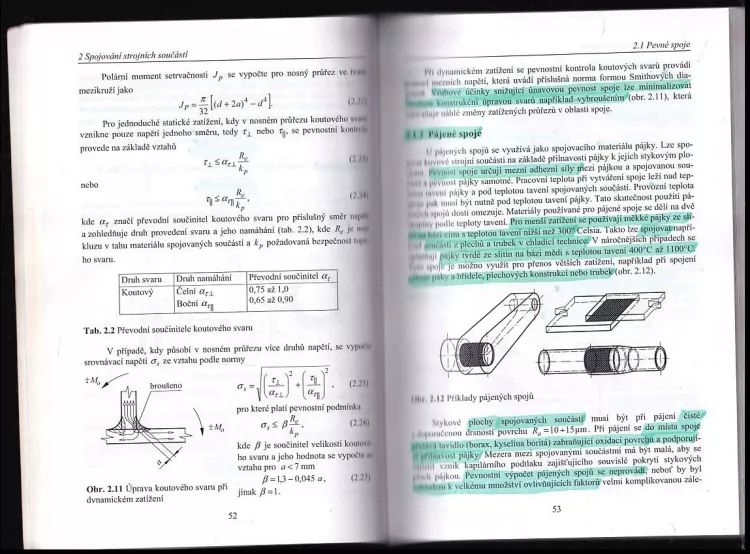 2 Spojování strojních součástí
Polární moment setrvačnosti J_p se vypočte pro nosný průřez ve tvaru
mezikruží jako
J_P = π/32 [(d + 2a)⁴ − d⁴].
Pro jednoduché statické zatížení, kdy v nosném průřezu koutového svaru
vznikne pouze napětí jednoho směru, tedy τ⊥ nebo τ∥, se pevnostní kontrola
provede na základě vztahů
τ⊥ ≤ α_τ⊥ R_e/k_p
nebo
τ∥ ≤ α_τ∥ R_e/k_p,
kde α_τ značí převodní součinitel koutového svaru pro příslušný směr napětí
a zohledňuje druh provedení svaru a jeho namáhání (tab. 2.2), kde R_e je mez
kluzu v tahu materiálu spojovaných součástí a k_p požadovaná bezpečnost
ho svaru.
Druh svaru Druh namáhání Převodní součinitel α_τ
Koutový Čelní α_τ⊥ 0,75 až 1,0
Boční α_τ∥ 0,65 až 0,90
Tab. 2.2 Převodní součinitele koutového svaru
V případě, kdy působí v nosném průřezu více druhů napětí, se vypočte
srovnávací napětí σ_s ze vztahu podle normy
±M_o
broušeno
±M_o
a
σ_s = √((τ⊥/α_τ⊥)² + (τ∥/α_τ∥)²), (2.25)
pro které platí pevnostní podmínka
σ_s ≤ β R_e/k_p, (2.26)
kde β je součinitel velikosti koutové-
ho svaru a jeho hodnota se vypočte ze
vztahu pro a < 7 mm
β = 1,3 − 0,045 a, (2.27)
jinak β = 1.
Obr. 2.11 Úprava koutového svaru při
dynamickém zatížení
52
2.1 Pevné spoje
Při dynamickém zatížení se pevnostní kontrola koutových svarů provádí
mezních napětí, která uvádí příslušná norma formou Smithových dia-
Vrubové účinky snižující únavovou pevnost spoje lze minimalizovat
konstrukční úpravou svarů například vybroušením (obr. 2.11), která
náhlé změny zatížených průřezů v oblasti spoje.
Pájené spoje
U pájených spojů se využívá jako spojovacího materiálu pájky. Lze spo-
strojní součásti na základě přilnavosti pájky k jejich stykovým plo-
Pevnost spoje určují mezní adhezní síly mezi pájkou a spojovanou sou-
a pevnost pájky samotné. Pracovní teplota při vytváření spoje leží nad tep-
tavení pájky a pod teplotou tavení spojovaných součástí. Provozní teplota
pak musí být nutně pod teplotou tavení pájky. Tato skutečnost použití pá-
spojů dosti omezuje. Materiály používané pro pájené spoje se dělí na dvě
podle teploty tavení. Pro menší zatížení se používají měkké pájky ze sli-
bázi cínu s teplotou tavení nižší než 300° Celsia. Takto lze spojovat např.
součásti z plechů a trubek v chladicí technice. V náročnějších případech se
pájky tvrdé ze slitin na bázi mědi s teplotou tavení 400°C až 1100°C.
spoje je možno využít pro přenos větších zatížení, například při spojení
páky a hřídele, plechových konstrukcí nebo trubek (obr. 2.12).
Obr. 2.12 Příklady pájených spojů
Stykové plochy spojovaných součástí musí být při pájení čisté,
doporučenou drsností povrchu R_a = 10 ÷ 15μm. Při pájení se do místa spoje
tavidla (borax, kyselina boritá) zabraňující oxidaci povrchu a podporují-
přilnavost pájky. Mezera mezi spojovanými součástmi má být malá, aby se
vznik kapilárního podtlaku zajišťujícího souvislé pokrytí stykových
pájkou. Pevnostní výpočet pájených spojů se neprovádí, neboť by byl
k velkému množství ovlivňujících faktorů velmi komplikovanou zále-
53